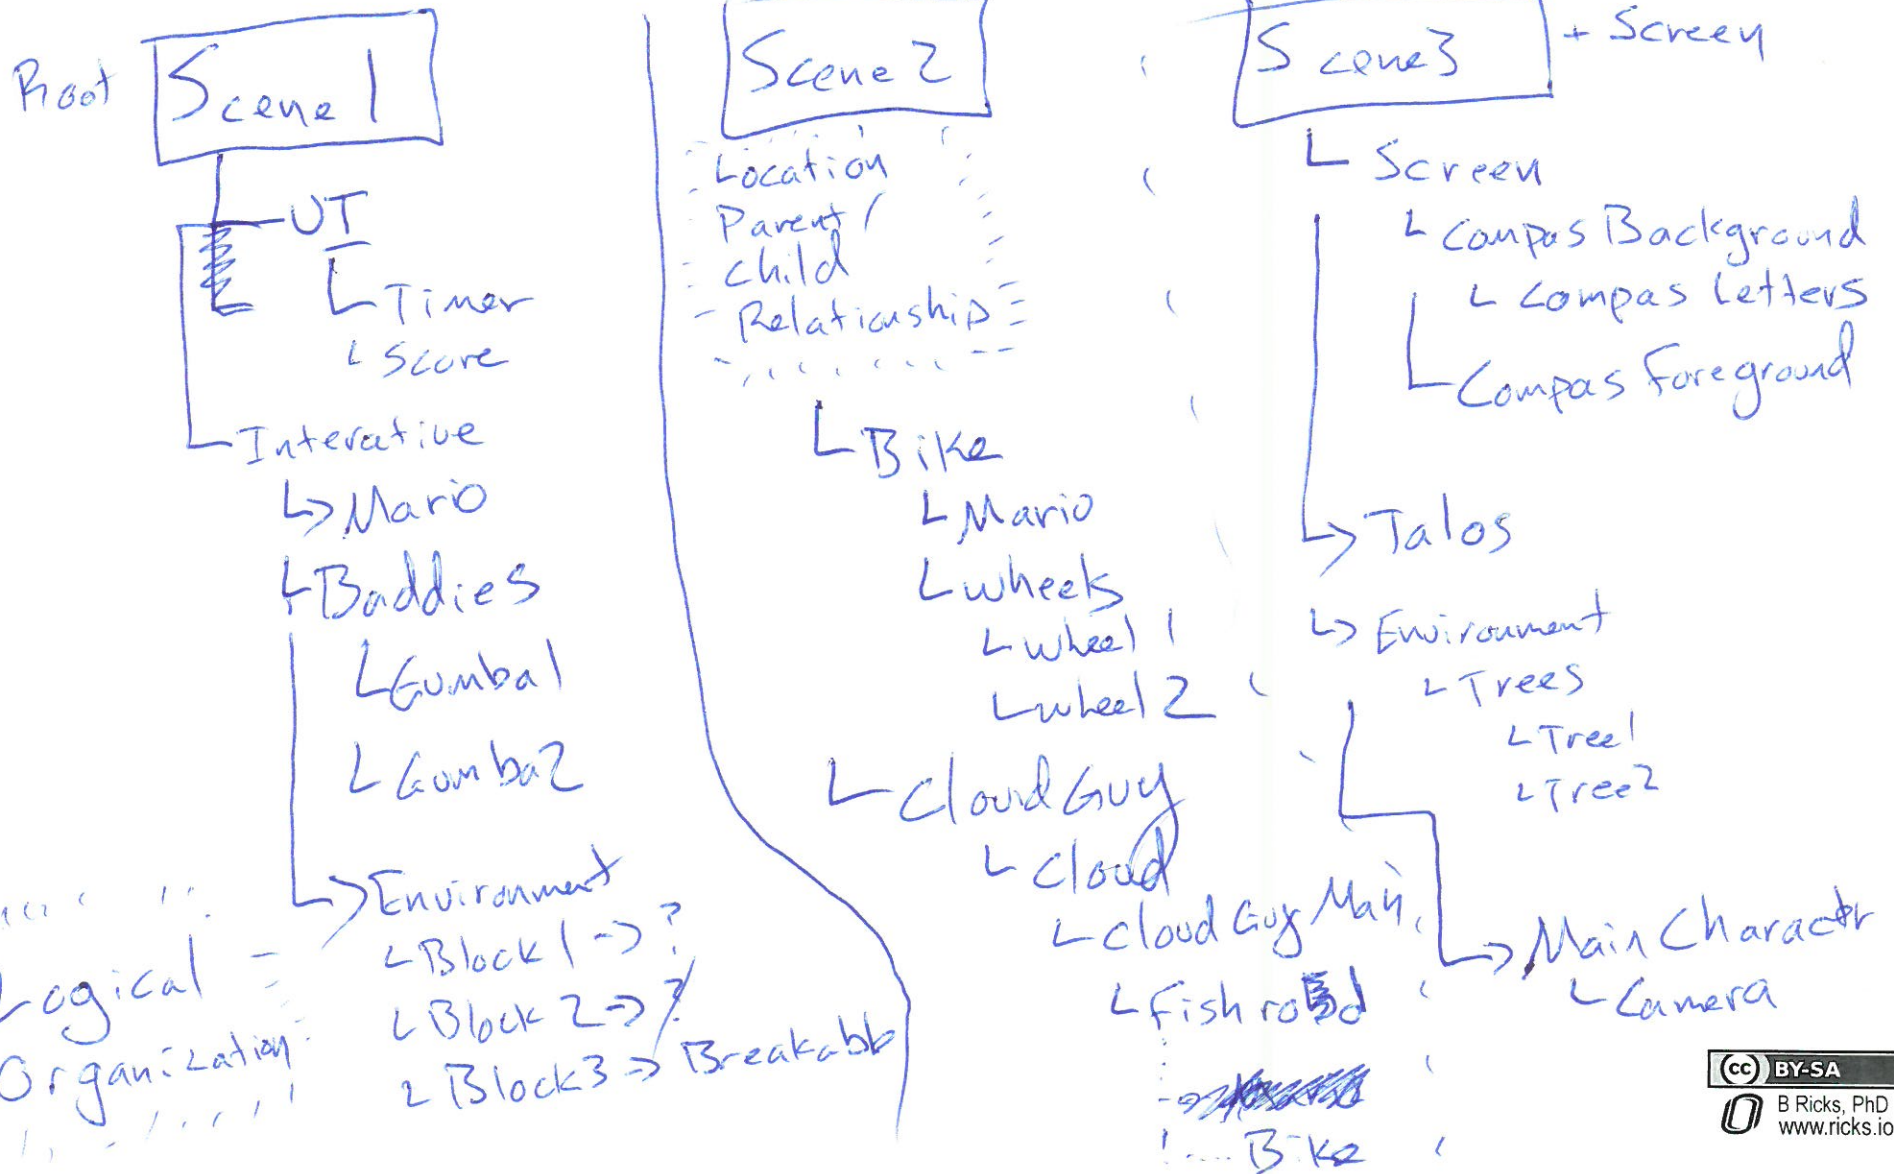 Root
Scene 1
UI
Timer
Score
Interative
Mario
Baddies
Gumba1
Gumba2
Environment
Block 1 -> ?
Block 2 -> ?
Block3 -> Breakabb
Logical
Organization
Scene 2
Location
Parent/
child
Relationship
Bike
Mario
wheels
wheel 1
wheel 2
Cloud Guy
Cloud
Cloud Guy Main
Fish rod
Bike
Scene3
+ Screen
Screen
Compas Background
Compas Letters
Compas Foreground
Talos
Environment
Trees
Tree1
Tree2
Main Charactr
Camera
CC BY-SA
B Ricks, PhD
www.ricks.io